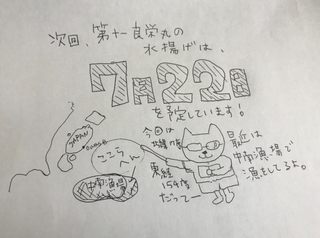 次回、第十一良栄丸の
水揚げは、
7月22日
を予定しています!
JAPAN
ここら
へん
中南漁場
今回は
東経
154度
だって〜
最近は
中南漁場で
漁をしてるよ。